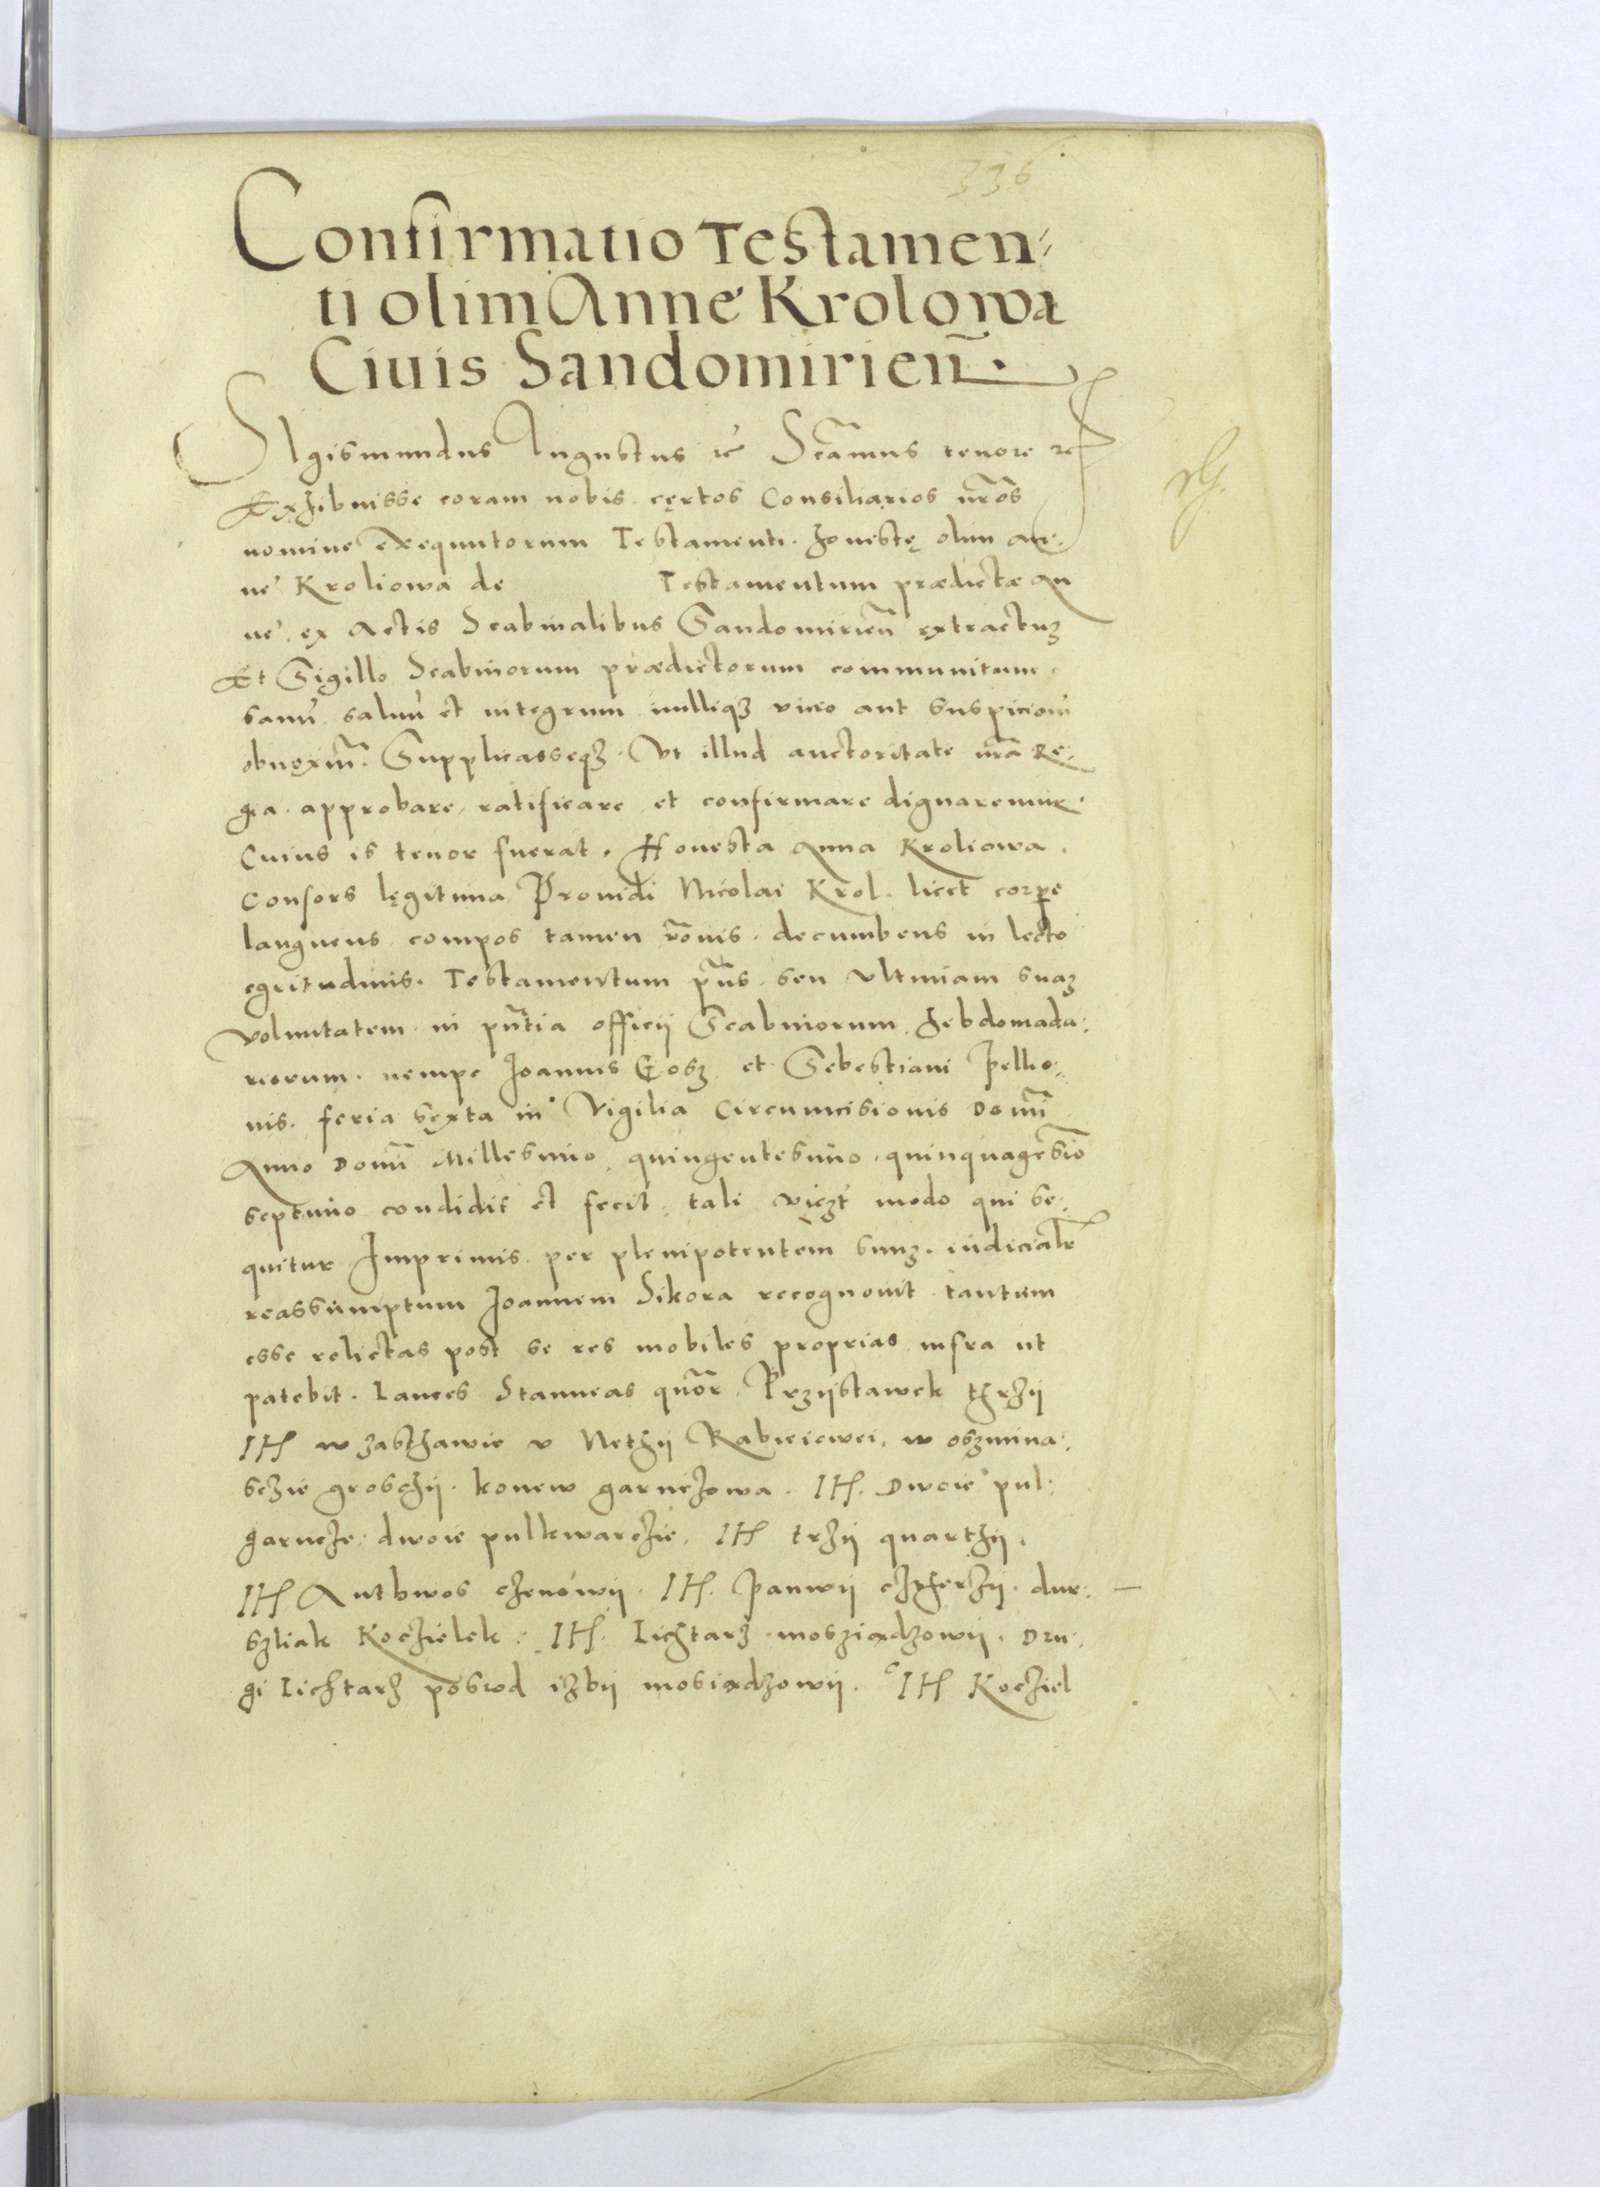 336
Confirmatio Testamen-
ti olim Anne Krolowa
Civis Sandomirien̄.
Sigismundus Augustus ꝛc̄ Sc̄amus tenore ꝛc
Exhibuisse coram nobis cęrtos Consiliarios nr̄os
nomine exequutorum Testamenti honestę olim an-
ne Kroliowa de Testamentum prædictæ An
ne ex Actis Scabinalibus Sandomirien̄ extractuȝ
Et Sigillo Scabinorum prædictorum communitum
sanū saluū et integrum nulliqȝ vicio aut suspicioni
obnoxiū. Supplicasseqȝ Vt illud auctoritate nr̄a Re-
gia approbare ratificare et confirmare dignaremur.
Cuius is tenor fuerat. Honesta Anna Kroliowa.
Consors lęgitima Prouidi Nicolai Krol. licet corꝑe
languens compos tamen rōnis. decumbens in lecto
egritudinis. Testamentum pn̄s seu vltimam suaȝ
voluntatem in pn̄tia officii Scabinorum hebdomada-
riorum. nempe Joannis Gosz et Sebestiani Pellio-
nis. feria sęxta in Vigilia Circumcisionis Domī
Anno Domī Millesimo quingentesimo quinquagesīo
septimo condidit et fecit tali viczt modo qui se-
quitur Imprimis per plenipotentem suuȝ iudicialr̄
reassumptum Joannem Sikora recognouit tantum
esse relictas post se res mobiles proprias infra ut
patebit. Lances Stanneas quōr. Przÿstawek thrzÿ
Itֿ w zasthawie v Nethÿ Rabieiewei w oszmina-
sczie grosczÿ. konew garnczowa. Itֿ. Dwoie pul-
garncze dwoie pulkwarczie. Itֿ trzÿ quarthÿ.
Itֿ Anthwos czenowÿ. Itֿ. Panwÿ cztherzÿ. dur- —
szliak Koczielek. Itֿ. Lichtarz mosziadzowÿ. Dru-
gi Lichtarz posrod izbÿ mosiadzowÿ. Itֿ Kocziel